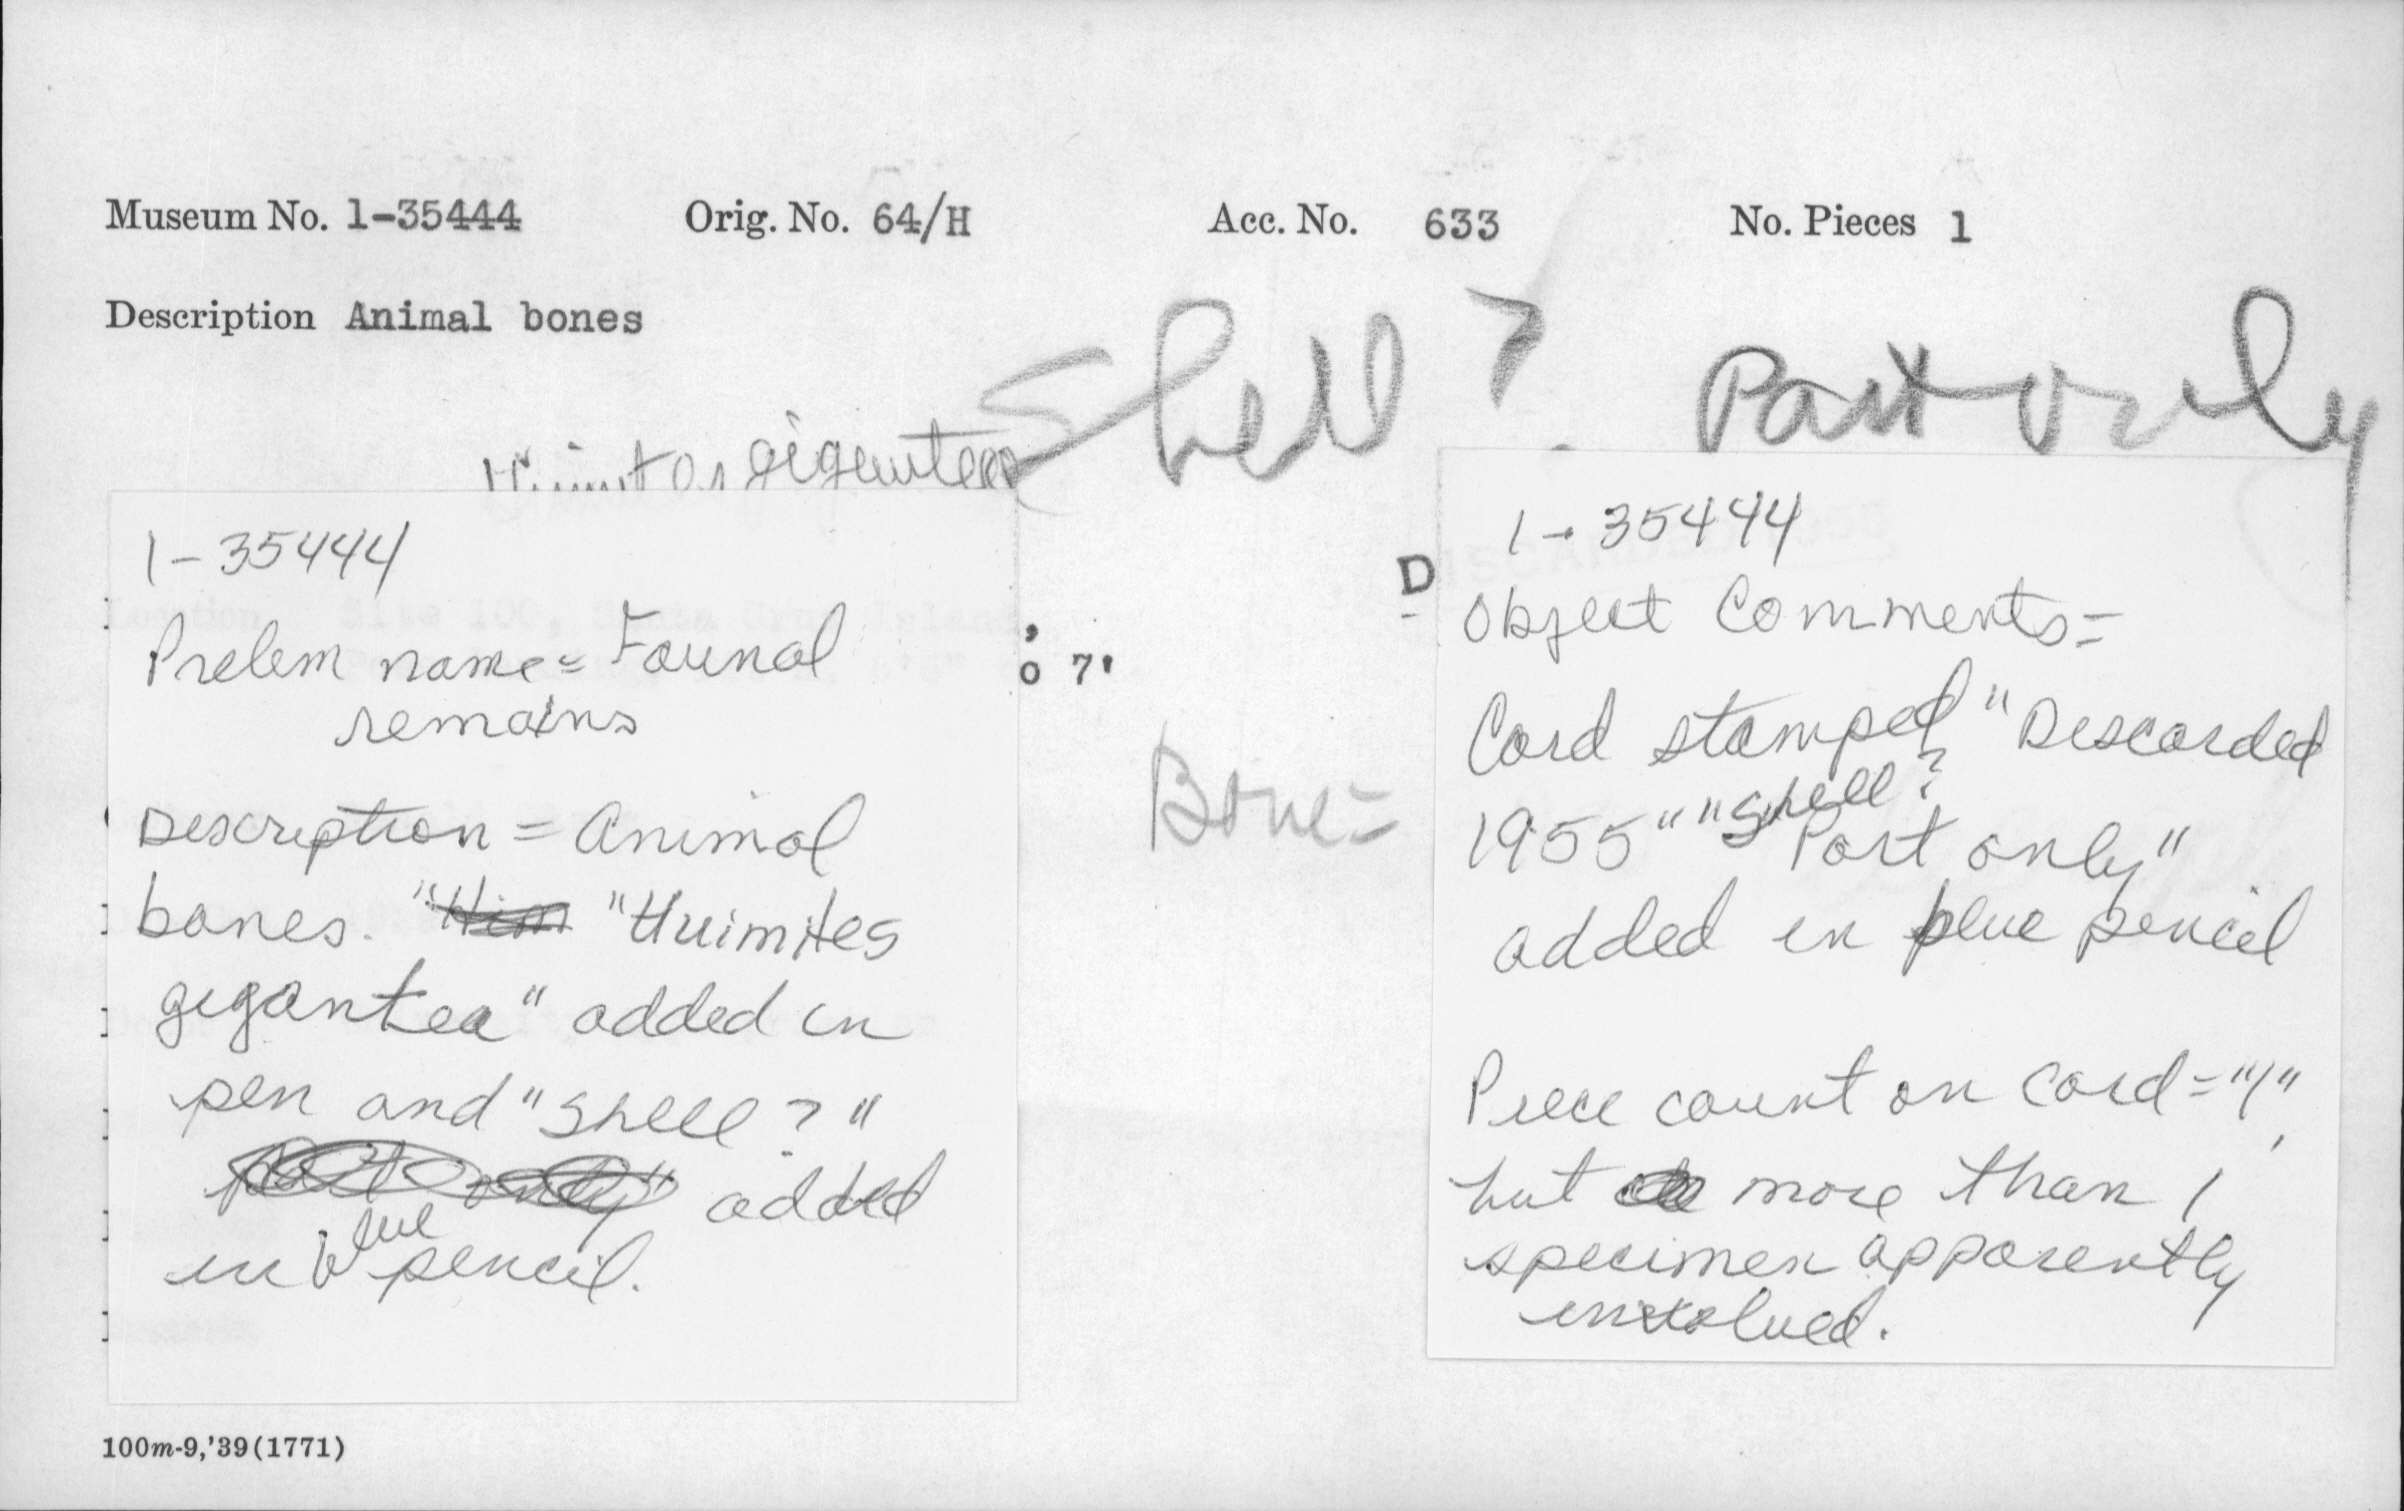 Museum No. 1-35444 Orig. No. 64/H Acc. No. 633 No. Pieces 1
Description Animal bones
Shell ? Part only
gigantea
1-35444
Prelim name = Faunal
remains
Description = Animal
bones. "Him "Huimites
gigantea" added in
pen and "Shell ? "
part only" added
in blue pencil.
,
o 7'
Bone =
D
1-35444
Object Comments =
Card stamped "Discarded
1955" "Shell ?
Part only"
added in blue pencil
Piece count on Card = "1",
but more than 1
specimen apparently
involved.
100m-9,'39(1771)